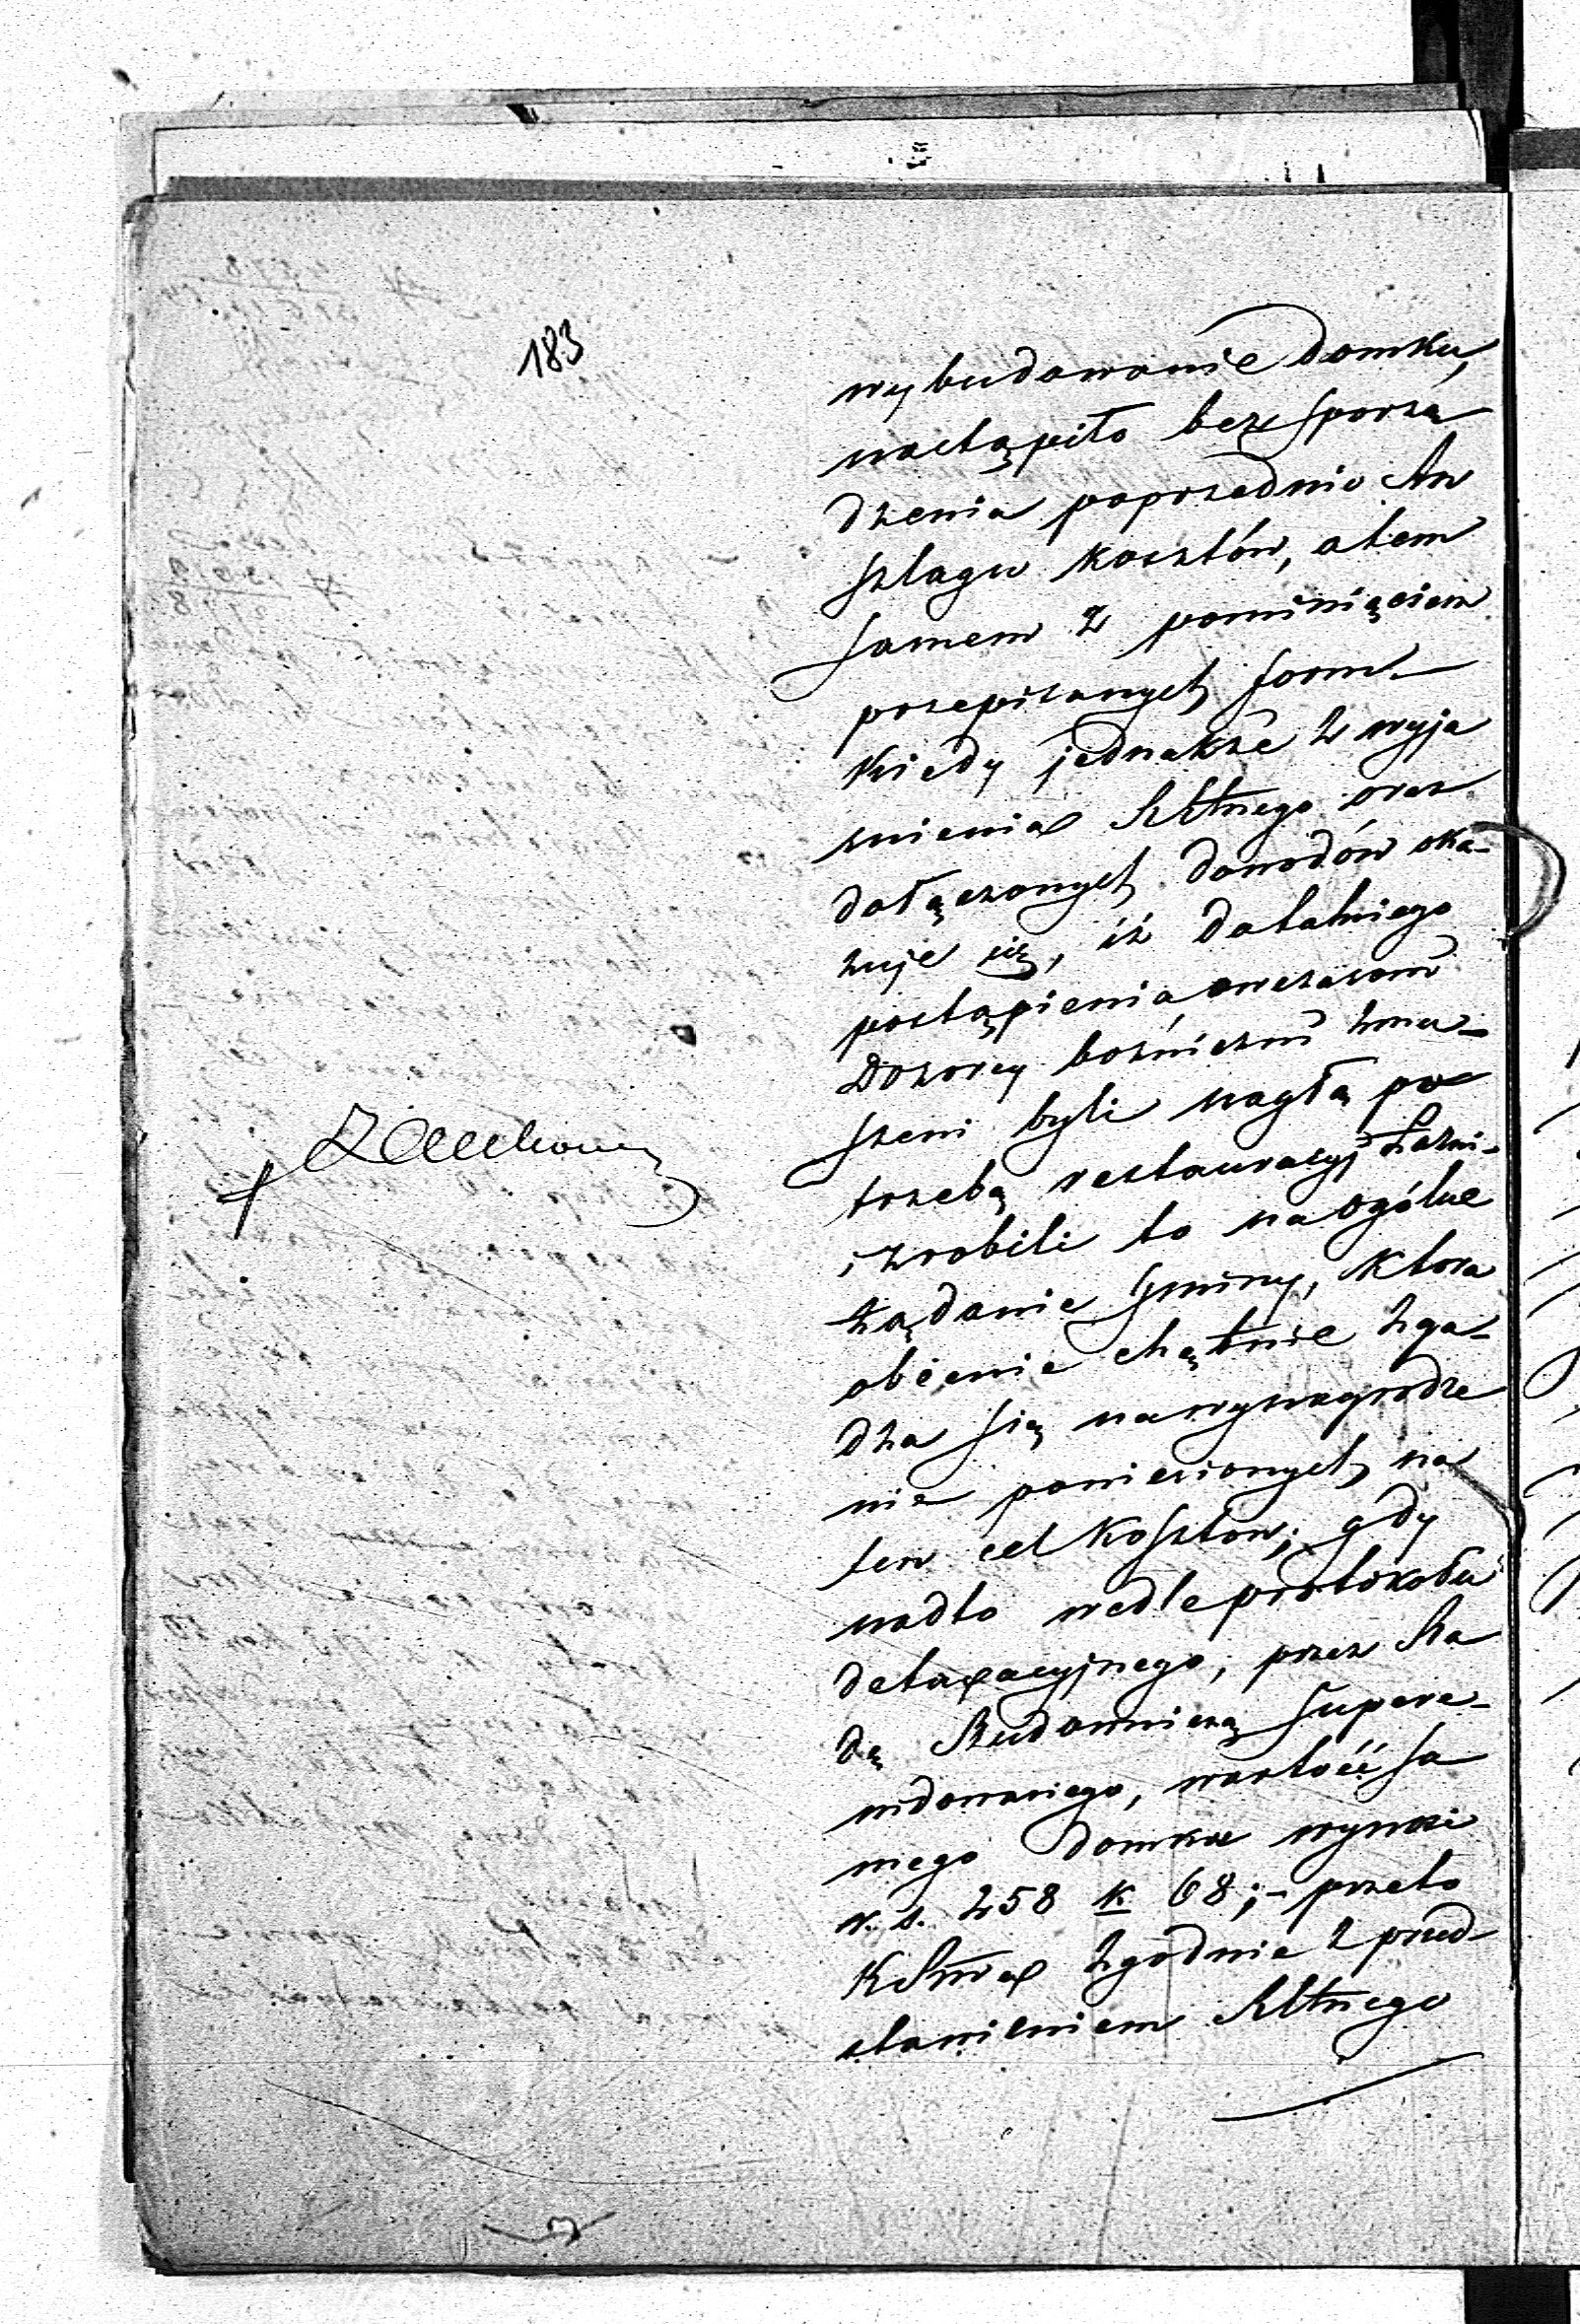 183
wybudowanie domku,
nastąpiło bez sporzą
dzenia poprzednio An
szlagu kosztów, a tem
samem z pominięciem
przepisanych form
Kiedy jednakże z wyja
śnienia Rktnego oraz
dołączonych dowodów oka-
zuje się, iż do takiego
postąpienia owczasowi
Dozorcy bożniczni zmu-
szeni byli nagłą po
trzebą restauracyj Łaźni-
i zrobili to na ogólne
żądanie Gminy, która
obecnie chętnie zga-
dza się na wynagrodze
nie poniesionych na
ten cel kosztow; gdy
nadto wedle protokołu
detaxacyjnego, przez Ra
dę Budowniczą superre-
widowanego, wartość sa
mego domku wynosi
r. s. 258 k 68;- przeto
zgodnie z przed-
stawieniem Rktnego